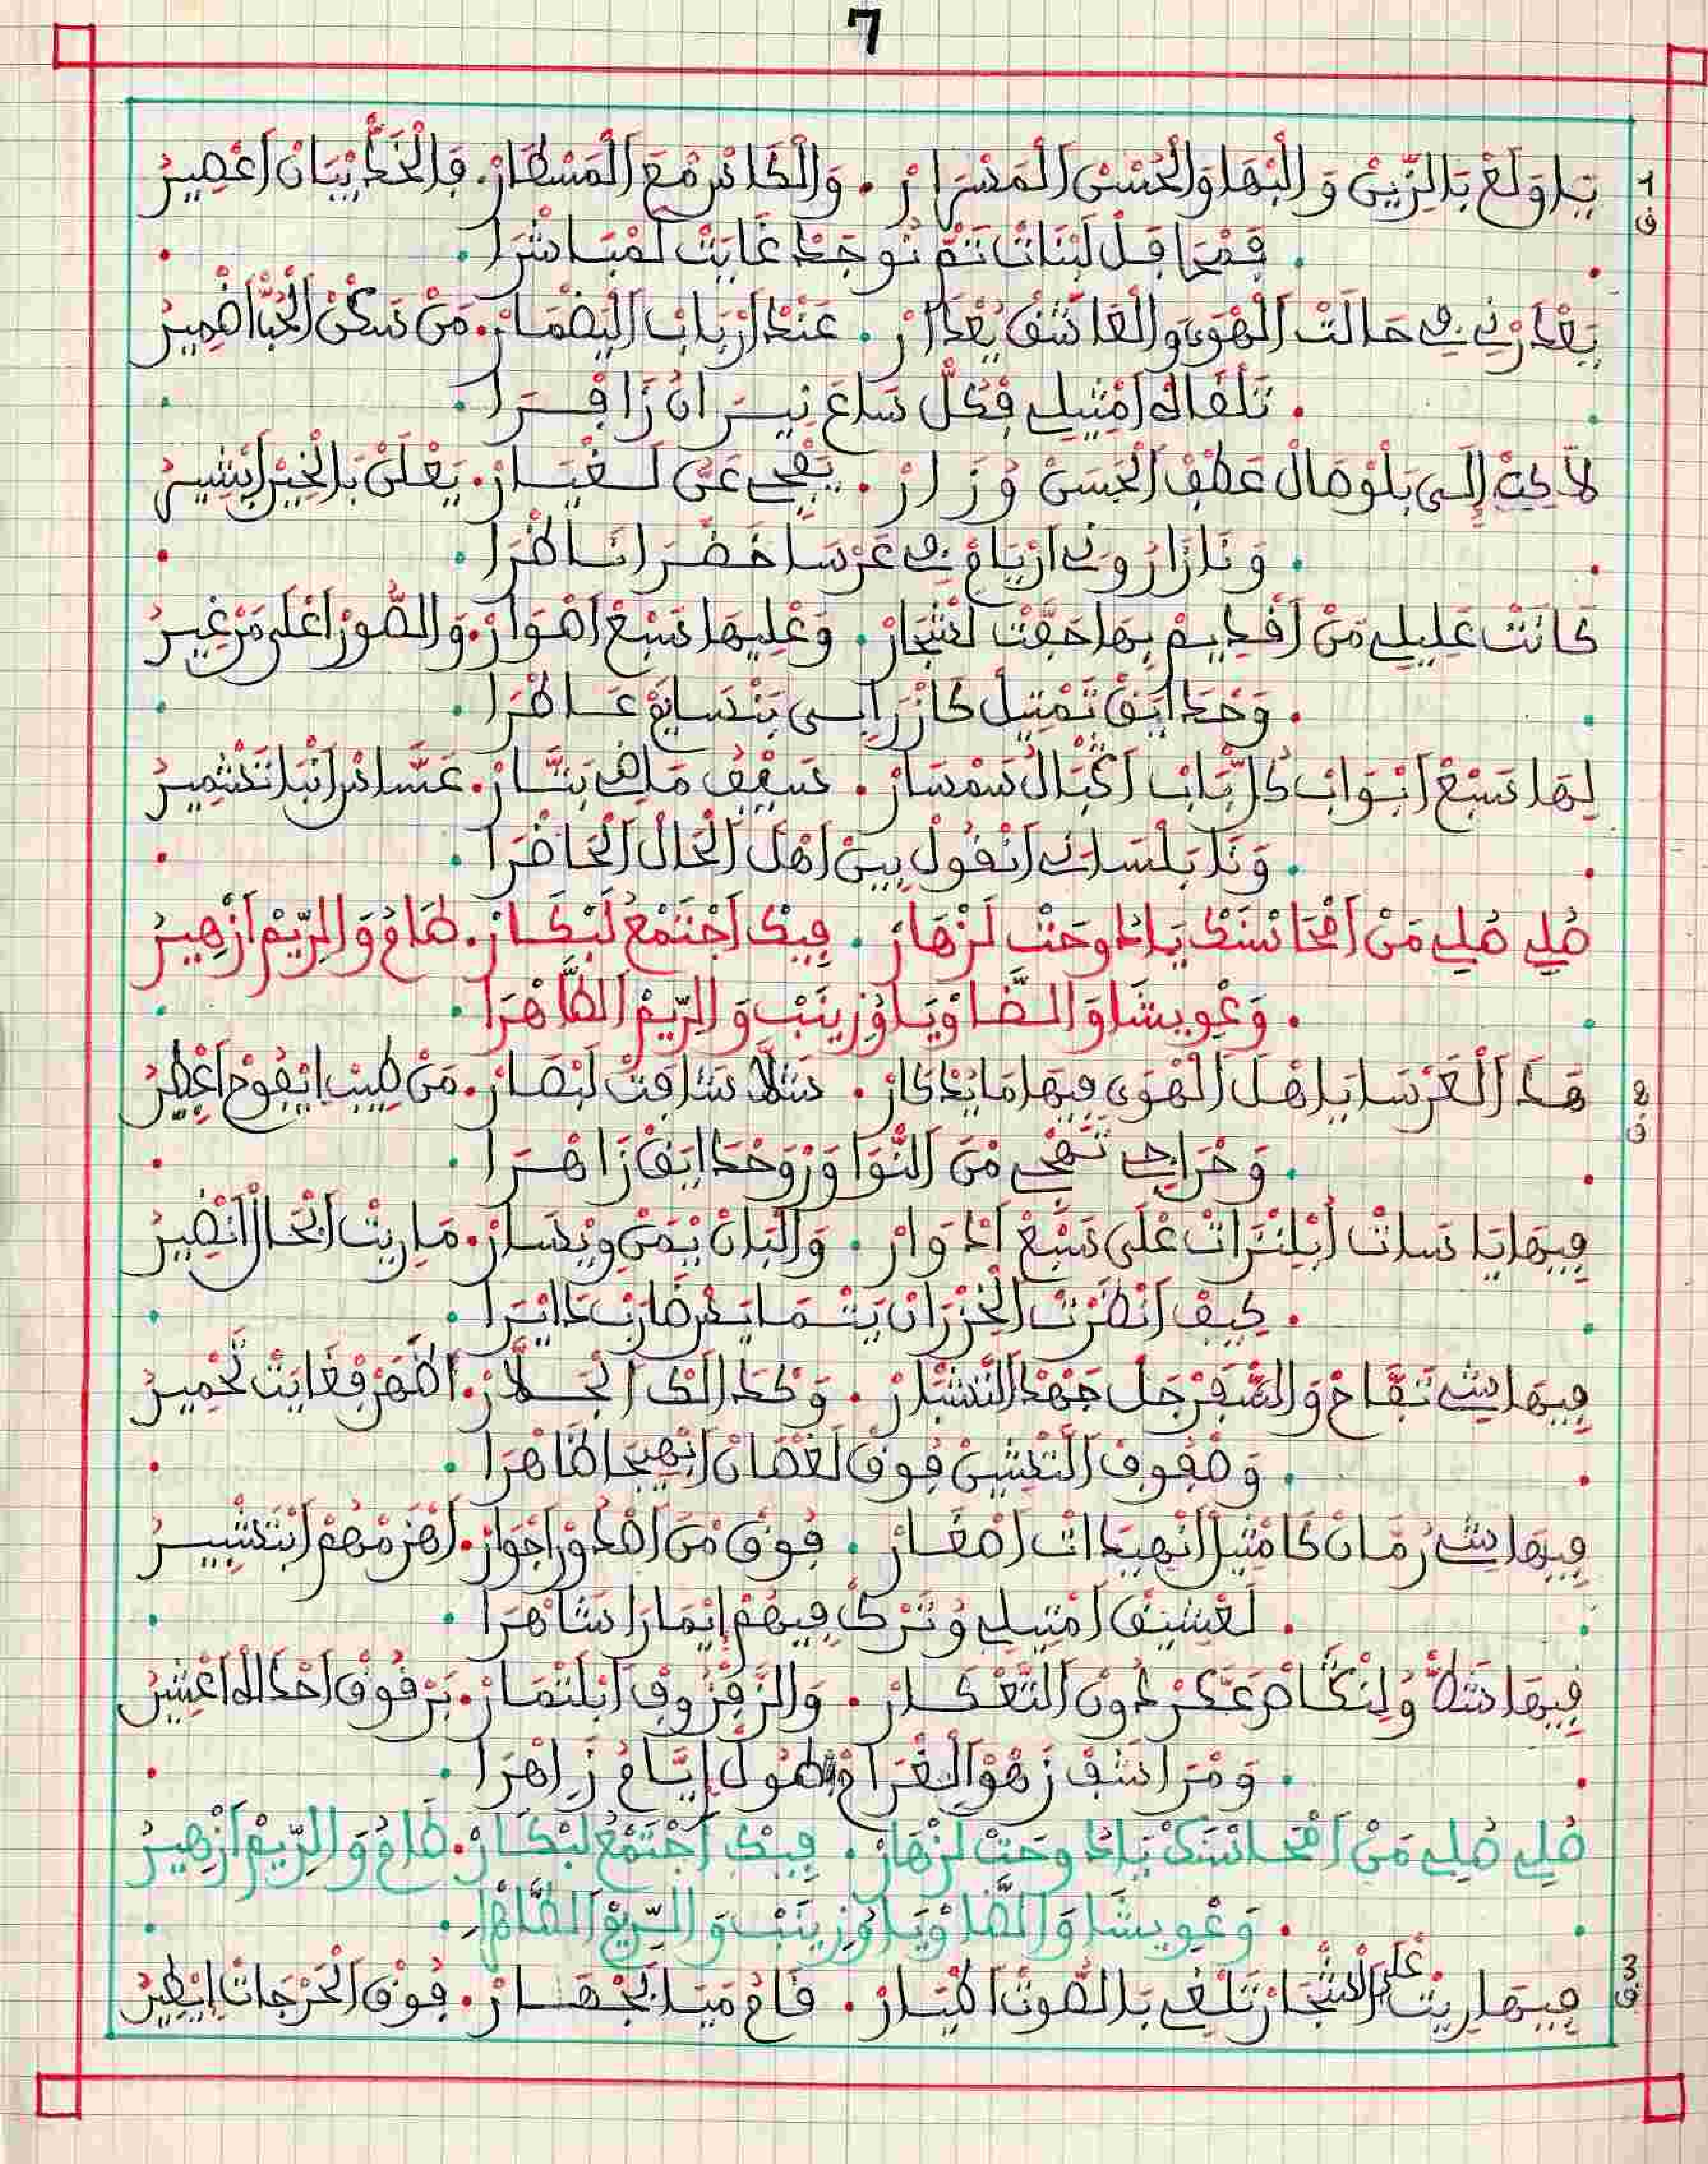 7
1 يَا وَلَعْ بَالزِّينْ وَالْبْهَا وَالْحُسْنْ الْمَسْرَارْ . وَالْكَاسْ مْعَ الْمَسْطَارْ . فَالْخَدْ يْبَانْ اعْصِيرْ
ف
. فَمْحَافَلْ لَبْنَاتْ تَمّْ نُوجَدْ غَايَتْ لَمْبَاشْرَا .
يَعْدَرْنِي فِي حَالَتْ الْهْوَى وَالْعَاشَقْ يُعْدَارْ . عَنْدْ ارْبَابْ الْيَضْمَارْ . مَنْ سَكْنْ الْحُبّْ اضْمِيرُ
. تَلْقَاهْ امْتِيلِي فْكُلّْ سَاعَ نِيرَانُ زَافْرَا .
لَا حَبّْ إِلَى بَلْوْصَالْ عَطْفْ الْحَسَنْ وُزَارْ . يَفْجِي عَنِّي لَغْيَارْ . يَعْلَنْ بَالْخِيرْ ابْشِيرُ
. وَنَا زَارُونِي ارْيَامْ فِي عَرْسَا خَضْرَا نَاظْرَا .
كَانَتْ عْلِيلِي مَنْ اقْدِيمْ بِهَا حَفَّتْ لَشْجَارْ . وَعْلِيهَا سَبْعْ اصْوَارْ . وَالصُّورْ اعْلَى مَنْ غِيرُ
. وَحْدَايَقْ تَمْتِيلْ كَازْرَابِي بَنْسَايَمْ عَاطْرَا .
لِهَا سَبْعْ ابْوَابْ كُلّْ بَابْ اقْبَالُ سَمْسَارْ . سَيْفُ مَاضِي بَتَّارْ . عَسَّاسْ انْبَا تَشْمِيرُ
. وَنَا بَلْسَانِي انْقُولْ بِينْ اهْلْ الْحَالْ الْحَاضْرَا .
صُلِي صُلِي مَنْ امْحَاسْنَكْ يَا دَوحَتْ لَزْهَارْ . فِيكْ اجْتَمْعُ لَبْكَارْ . طَامُ وَالرِّيمْ ازْهِيرُ
. وَعْوِيشَا وَالضَّاوْيَا وُزِينَبْ وَالرِّيمْ الطَّاهْرَا .
2 هَدْ الْعَرْسَا يَا هْلْ الْهْوَى فِيهَا مَا يُدْكَارْ . شَلَّا شَافَتْ لَبْصَارْ . مَنْ طِيبْ ايْفُوحْ اعْطِيرُ
ف
. وَخْرَاجِي تَفْجِي مْنَ النْوَا وَرْوَحْدَايَقْ زَاهْرَا .
فِيهَا يَا سَاتْ ابْلِنْزَرَاتْ عْلَى سَبْعْ ادْوَارْ . وَالْبَانْ يْمَنْ وِيْسَارْ . مَا رِيتْ ابْحَالْ انْضِيرُ
. كِيفْ انْظَرْتْ الْخِزْرَانْ يَتْمَايَسْ ضَارْبْ دَايْرَا .
فِيهَا شِي تَفَّاحْ وَالسْفَرْجَلْ جَهْدْ التَّشْبَارْ . وَكْدَالَكْ الْجَلَّارْ . اظْهَرْ فْغَايَتْ تَحْمِيرُ
. وَصْفُوفْ التَّشِينْ فُوقْ لَغْصَانْ ابْهِيجَا ظَاهْرَا .
فِيهَا شِي رُمَّانْ كَا مْثِيلْ انْهِيدَاتْ اصْغَارْ . فُوقْ مْنَ اصْدُورْ اجْوَارْ . اهْزَمْهُمْ ابْتَشْيِيرُ
. لَعْشِيقْ امْتِيلِي وُتَرْكْ فِيهُمْ إِيمَارَا شَاهْرَا .
فِيهَا شَلَّا وُلِنْكَاصْ عَكَّرْ دُونْ التَّعْكَارْ . وَالزَّفْزُوفْ ابْلَتْمَارْ . بَرْقُوقْ احْدَاهْ اعْشِيرُ
. وَمْرَاشَفْ زَهْوْ الْغْرَامْ طُولْ إِيَّامُ زَاهْرَا .
صُلِي صُلِي مَنْ امْحَاسْنَكْ يَا دَوحَتْ لَزْهَارْ . فِيكْ اجْتَمْعُ لَبْكَارْ . طَامُ وَالرِّيمْ ازْهِيرُ
. وَعْوِيشَا وَالضَّاوْيَا وُزِينَبْ وَالرِّيمْ الطَّاهْرَا .
3 فِيهَا رِيتْ عْلَى الَاشْجَارْ تَلْغِي بَالصُّوتْ اطْيَارْ . قَامْ مَيَّا بَجْهَارْ . فُوقْ الْحَرْجَاتْ ايْطِيرُ
ف